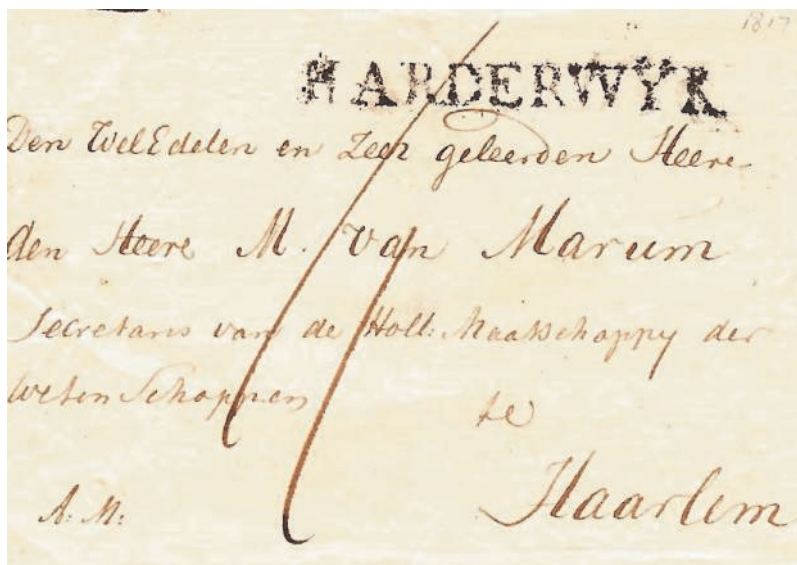 1817
HARDERWYK
Den WelEdelen en Zeer geleerden Heere
den Heere M. van Marum
Secretaris van de Holl: Maatschappy der
Wetenschappen
te
A: M: Haarlem